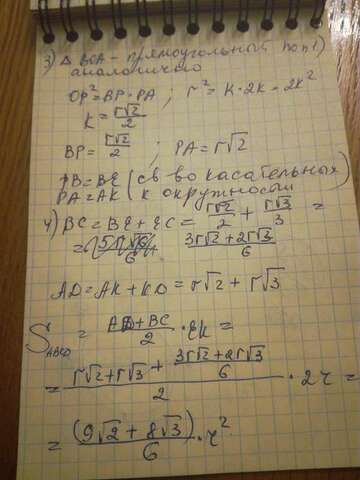 3) △ BOA - прямоугольный по п.1)
аналогично
OP² = BP · PA ; r² = K · 2K = 2K²
K = r√2/2
BP = r√2/2 ; PA = r√2
PB = BE (св-во касательных
PA = AK ( к окружности
4) BC = BE + EC = r√2/2 + r√3/3 =
= 3r√2+2r√3/6
AD = AK + KD = r√2 + r√3
S ABCD = AD+BC/2 · EK =
= r√2+r√3 + 3r√2+2r√3/6 / 2 · 2r =
= (9√2 + 8√3)/6 · r²